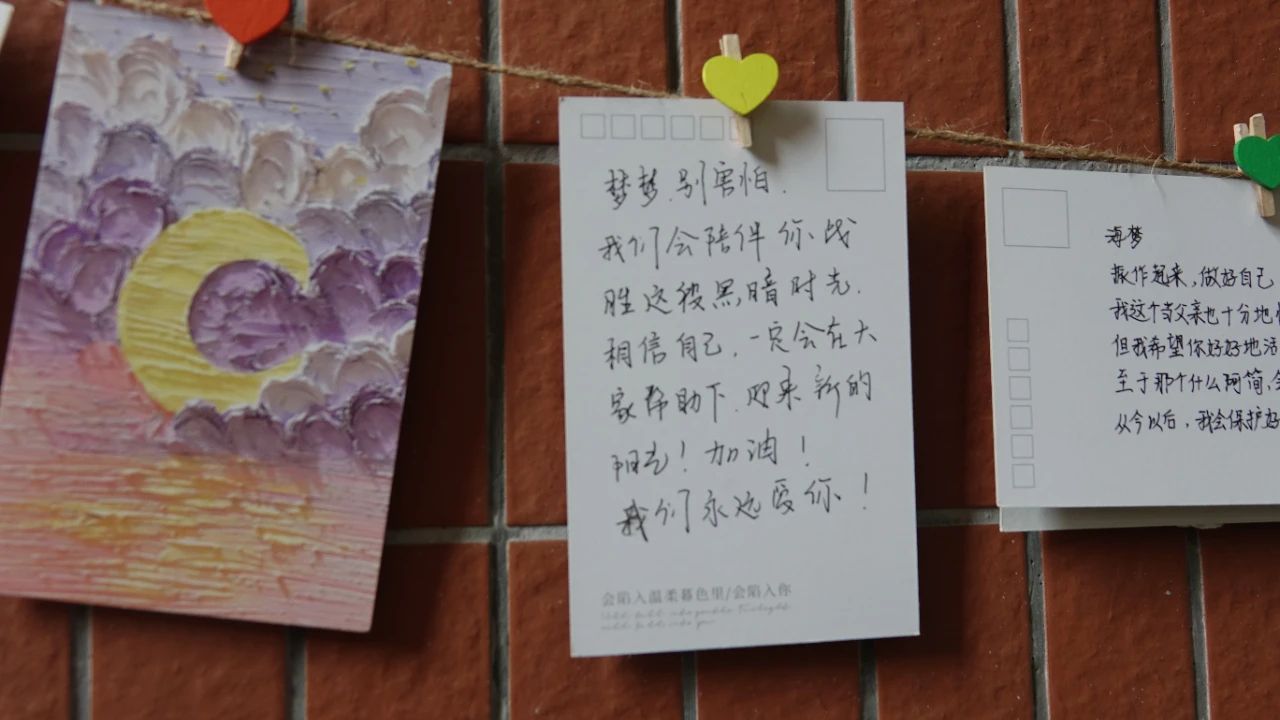 梦梦.别害怕.
我们会陪伴你战
胜这段黑暗时光.
相信自己.一定会在大
家帮助下.迎来新的
阳光！加油！
我们永远爱你！
会陷入温柔暮色里/会陷入你
海梦
振作起来,做好自己
我这个当父亲也十分地
但我希望你好好地活
至于那个什么阿简,
从今以后,我会保护好